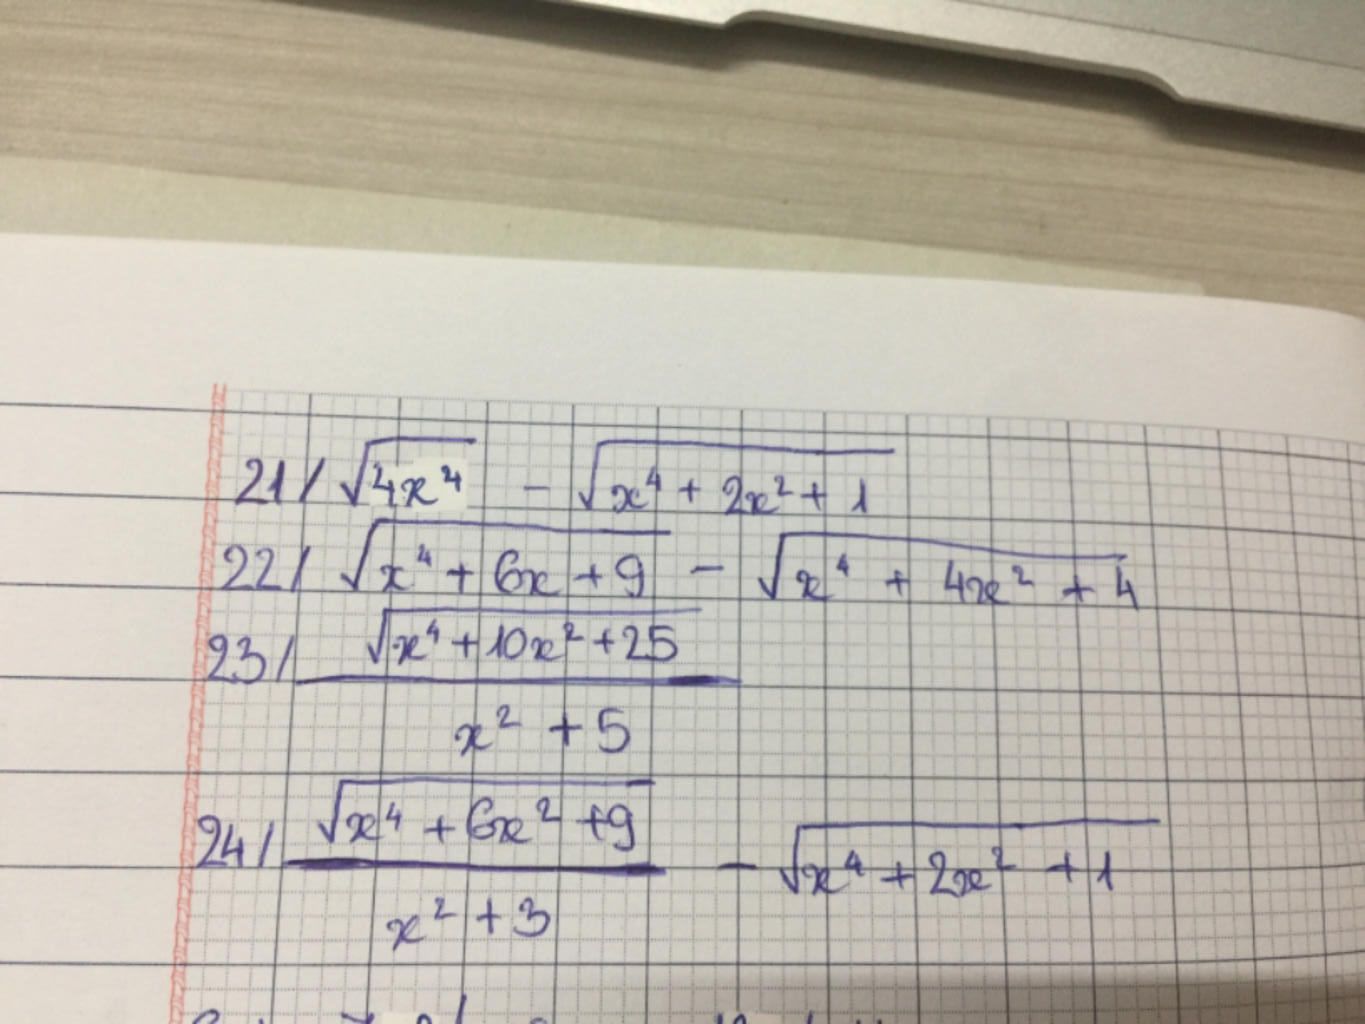 21/ √(4x⁴) - √(x⁴ + 2x² + 1)
22/ √(x⁴ + 6x + 9) - √(x⁴ + 4x² + 4)
23/ √(x⁴ + 10x² + 25) / (x² + 5)
24/ √(x⁴ + 6x² + 9) / (x² + 3) - √(x⁴ + 2x² + 1)